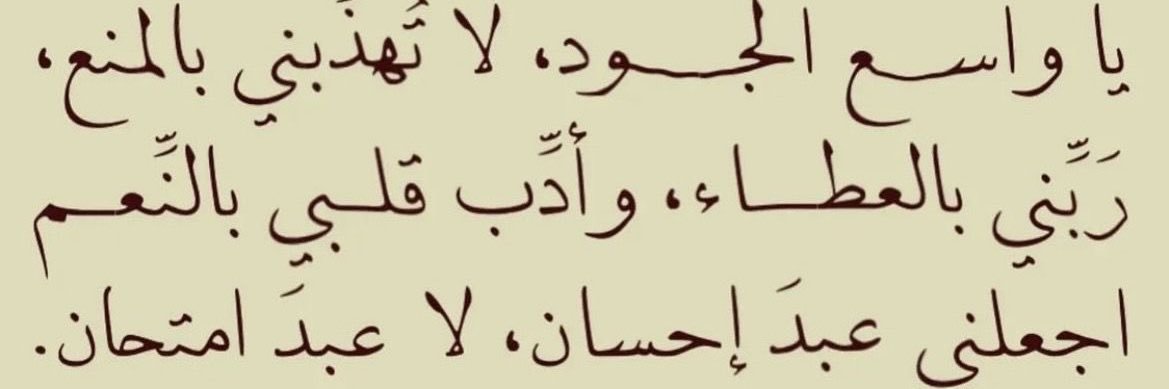 يا واسع الجود، لا تُهذّبني بالمنع،
رَبِّني بالعطاء، وأدِّب قلبي بالنِّعم
اجعلني عبدَ إحسان، لا عبدَ امتحان.